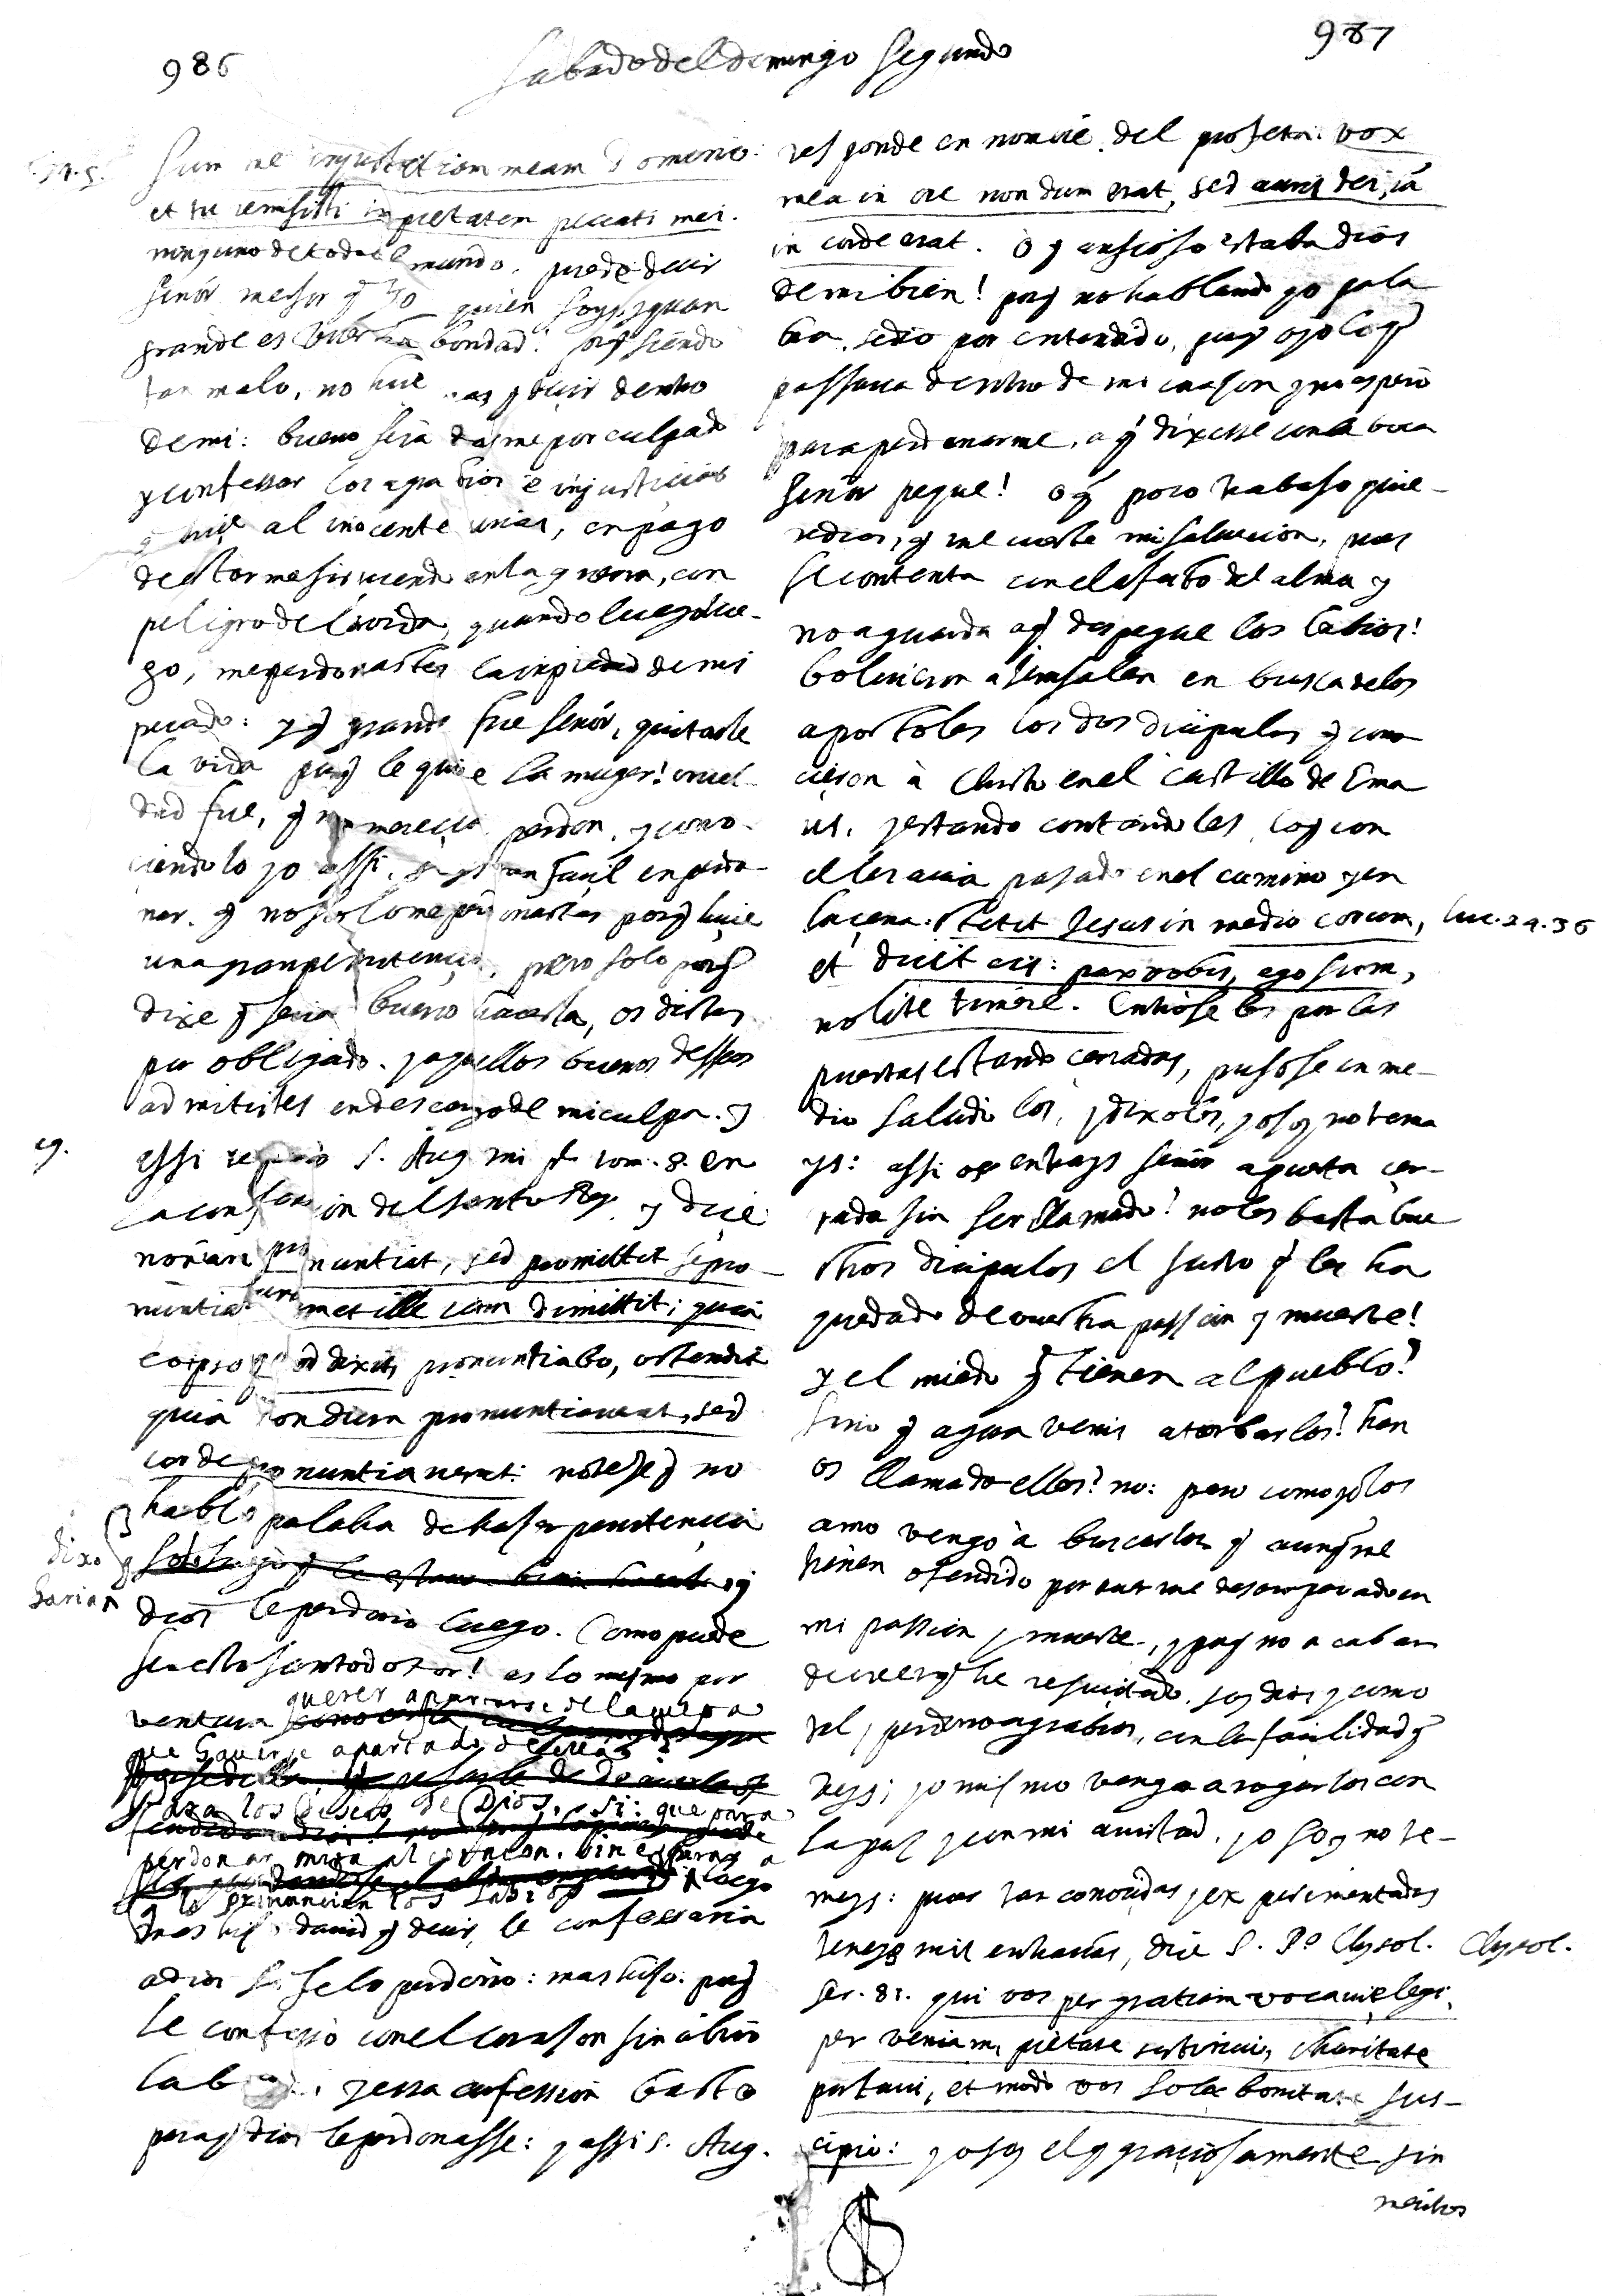 986
Sabado del domingo segundo
987
sum me injustitiam meam Domino:
et tu remisisti impietatem peccati mei.
ninguno de todo el mundo, puede decir
señor mejor q yo quien soys, y quan
grande es vuestra bondad! porq siendo
tan malo, no hice mas q decir dentro
de mi: bueno sera darme por culpado
y confessar los agravios e injusticias
q hice al inocente urias, en pago
de estarme sirviendo en la guerra, con
peligro de la vida, quando luego lue-
go, me perdonastes la impiedad de mi
pecado: y q grande fue señor, quitarle
la vida porq le quite la muger! cruel-
dad fue, q no merecia perdon, y cono-
ciendolo yo assi, soys tan facil en perdo-
nar, q no solo me perdonastes porq hice
una gran penitencia, pero solo porq
dixe q seria bueno hacerla, os distes
por obligado. y aquellos buenos desseos
admitistes en descargo de mi culpa. y
assi reparo S. Aug. mi pe. tom. 8. en
la confession del santo Rey, y dice:
non iam pronuntiat, sed promittit se pro-
nuntiaturum et ille iam dimittit; quia
eo ipso quod dixit, pronuntiabo, ostendit
quia nondum pronuntiaverat, sed
corde pronuntiaverat: notese q no
hablo palabra de haser penitencia
dixo q
haria
dios le perdono luego. Como puede
ser esto santo dotor! es lo mismo por
ventura querer apartarse de la culpa
que haverse apartado de
para los deseos de Dios, si: que para
perdonar mira al corazon, sin esperar a
q lo pronuncien los labios luego
mas hiso david q decir, le confessaria
a dios y se lo perdono: mas hiso: porq
le confesso con el corason sin abrir
la boca, y essa confession basto
para q dios le perdonasse: y assi S. Aug.
responde en nombre del profeta: vox
mea in ore nondum erat, sed auris dei, ia
in corde erat. o q ansioso estaba dios
de mi bien! porq no hablando yo pala
bra, se dio por entendido, pues oyo lo q
passava dentro de mi corason y no espero
para perdonarme, a q dixesse con la boca
señor peque! o q poco trabajo quie-
re dios, q me cueste mi salvacion, pues
se contenta con el afecto del alma y
no aguarda a q despegue los labios!
bolvieron a Jerusalen en busca de los
apostoles los dos dicipulos q cono
cieron à Christo en el castillo de Ema
us, y estando contandoles lo q con
el les avia pasado en el camino y en
la çena. stetit Jesus in medio eorum,
Luc. 24. 36
et dicit eis: pax vobis, ego sum,
nolite timere. Entrose les por las
puertas estando cerradas, pusose en me-
dio saludolos, y dixoles, yo soy no tema
ys: assi os entrays señor a puerta cer-
rada sin ser llamado! no les basta a vue
stros dicipulos el susto q les ha
quedado de vuestra passion y muerte!
y el miedo q tienen al pueblo?
sino q agora venis a turbarlos? han
os llamado ellos? no: pero como yo los
amo vengo à buscarlos q aunq me
tienen ofendido por averme desamparado en
mi passion y muerte, y porq no acaban
de creer q he resucitado. soy dios y como
tal, perdono agravios, con la facilidad q
veys; yo mismo vengo a rogarlos con
la paz y con mi amistad, yo soy no te-
mays: pues tan conocidas y experimentadas
teneys mis entrañas, dice S. Po. Chrysol.
Chrysol.
Ser. 81. qui vos per gratiam vocavi, elegi
per veniam, pietate sustinui, charitate
portavi, et modo vos sola bonitate sus-
cipio: yo soy el q graciosamente sin
meritos